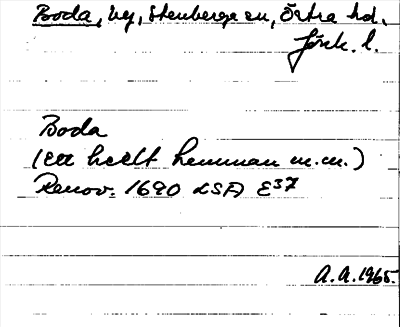 Boda, by, Stenberga sn, Östra hd.
Jönk. l.
Boda
(Ett heelt hemman m.m.)
Renov. 1690 LSA E37
A.A. 1965.